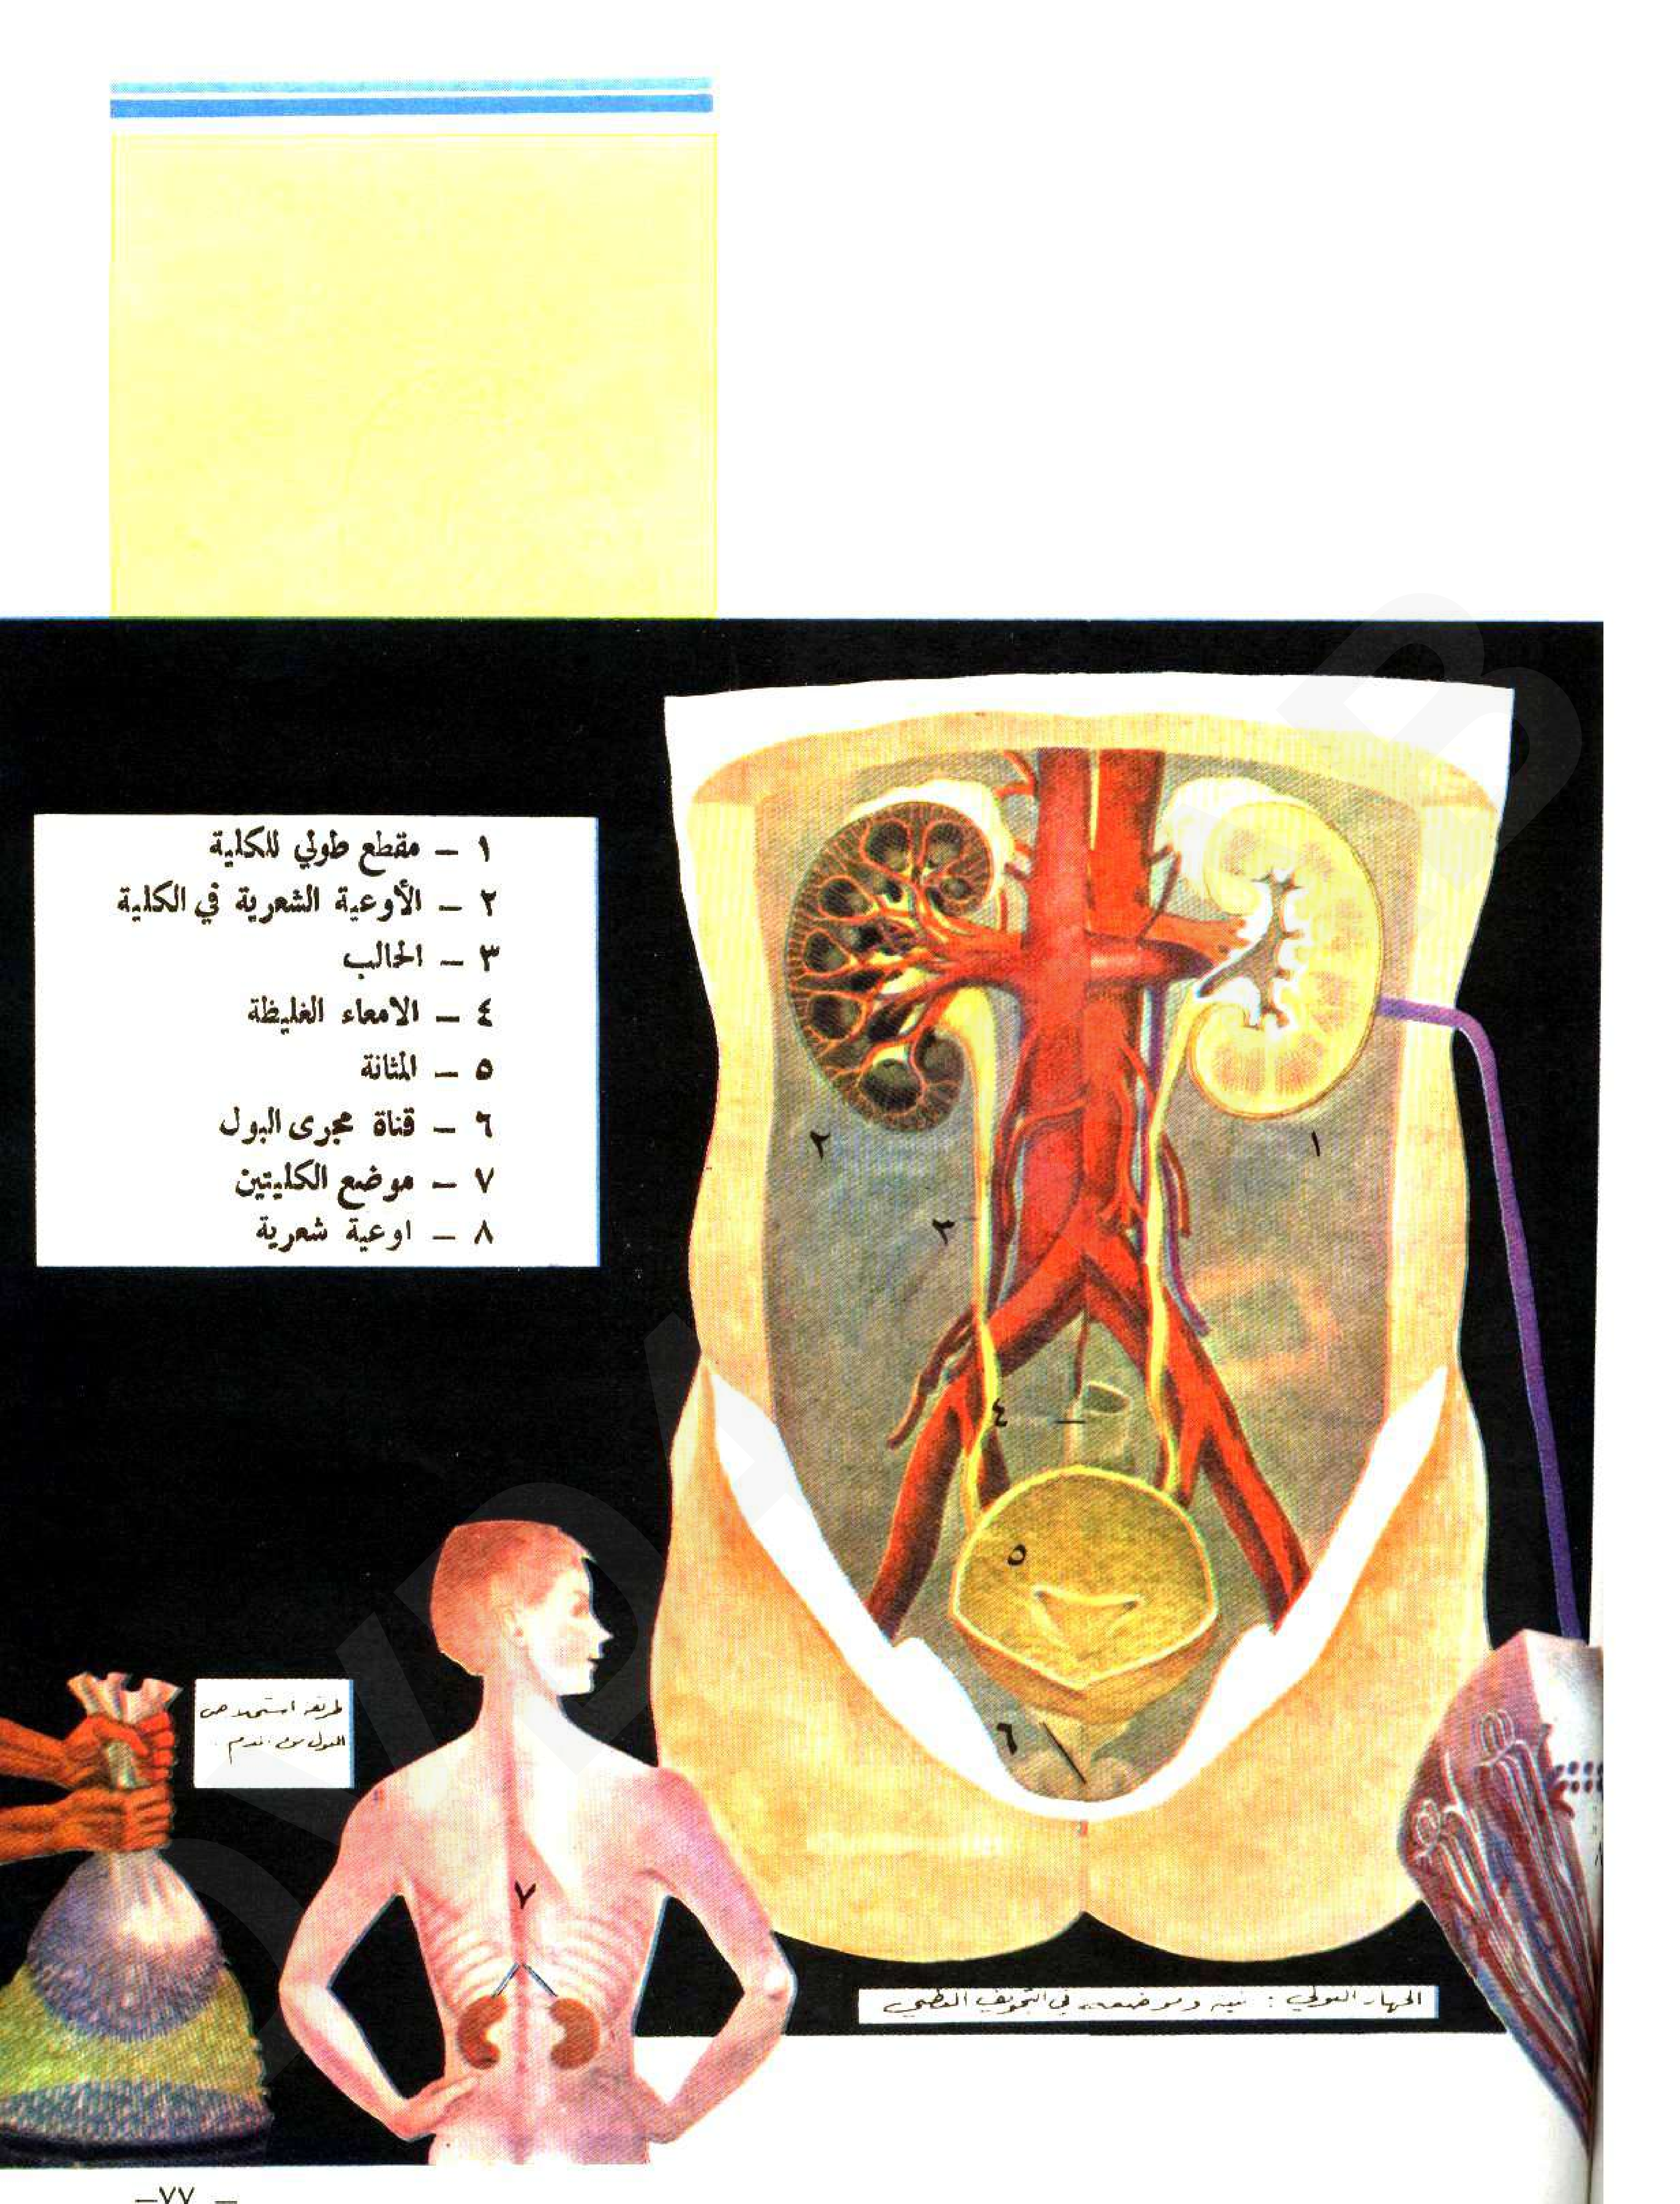 ١ – مقطع طولي للكلية
٢ – الأوعية الشعرية في الكلية
٣ – الحالب
٤ – الامعاء الغليظة
٥ – المثانة
٦ – قناة مجرى البول
٧ – موضع الكليتين
٨ – اوعية شعرية
١
٢
٣
٤
٥
٦
طريقة استخلاص
البول من الدم .
٧
الجهاز البولي : بنيته وموضعه في التجويف البطني
– ٧٧ –